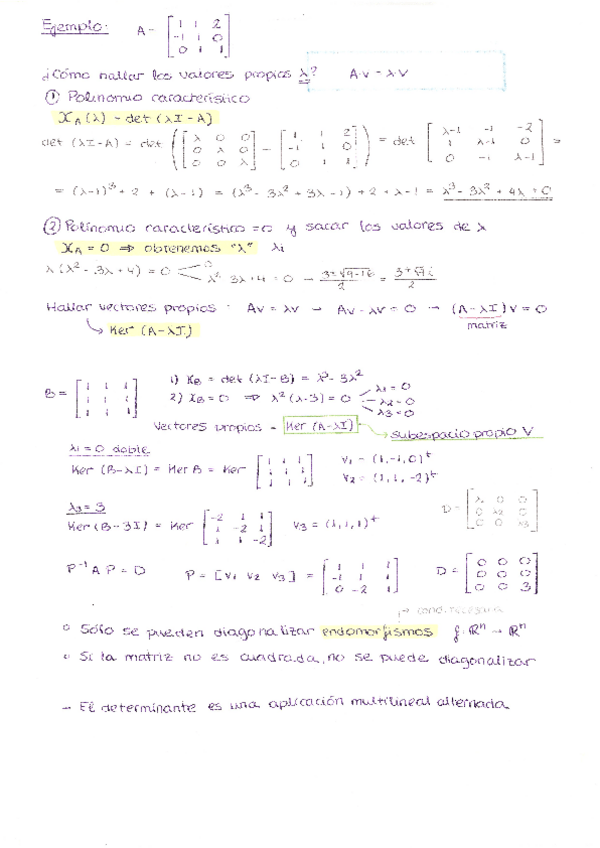 Ejemplo: A = [1 1 2; -1 1 0; 0 1 1]
¿Cómo hallar los valores propios λ? A·v = λ·v
① Polinomio característico
X_A(λ) = det(λI-A)
det(λI-A) = det([λ 0 0; 0 λ 0; 0 0 λ] - [1 1 2; -1 1 0; 0 1 1]) = det [λ-1 -1 -2; 1 λ-1 0; 0 -1 λ-1] =
= (λ-1)³ + 2 + (λ-1) = (λ³ - 3λ² + 3λ - 1) + 2 + λ - 1 = λ³ - 3λ² + 4λ + 0
② Polinomio característico = 0 y sacar los valores de λ
X_A = 0 ⇒ obtenemos "λ" λi
λ(λ² - 3λ + 4) = 0 < 0
λ² 3λ + 4 = 0 → 3±√9-16 / 2 = 3±√7i / 2
Hallar vectores propios: Av = λv → Av - λv = 0 → (A-λI)v = 0
↳ Ker (A-λI) matriz
B = [1 1 1; 1 1 1; 1 1 1] 1) X_B = det(λI-B) = λ³ - 3λ²
2) X_B = 0 ⇒ λ²(λ-3) = 0 λ1 = 0 λ2 = 0 λ3 = 0
Vectores propios = Ker (A-λI) → subespacio propio V
λ1 = 0 doble
Ker (B-λI) = Ker B = Ker [1 1 1; 1 1 1; 1 1 1] v1 = (1,-1,0)ᵗ
v2 = (1,1,-2)ᵗ
λ3 = 3
Ker (B-3I) = Ker [-2 1 1; 1 -2 1; 1 1 -2] v3 = (1,1,1)ᵗ D = [λ1 0 0; 0 λ2 0; 0 0 λ3]
P⁻¹ A P = D P = [v1 v2 v3] = [1 1 1; -1 1 1; 0 -2 1] D = [0 0 0; 0 0 0; 0 0 3]
→ cond. necesaria
° Sólo se pueden diagonalizar endomorfismos f: ℝⁿ → ℝⁿ
° Si la matriz no es cuadrada, no se puede diagonalizar
- El determinante es una aplicación multilineal alternada